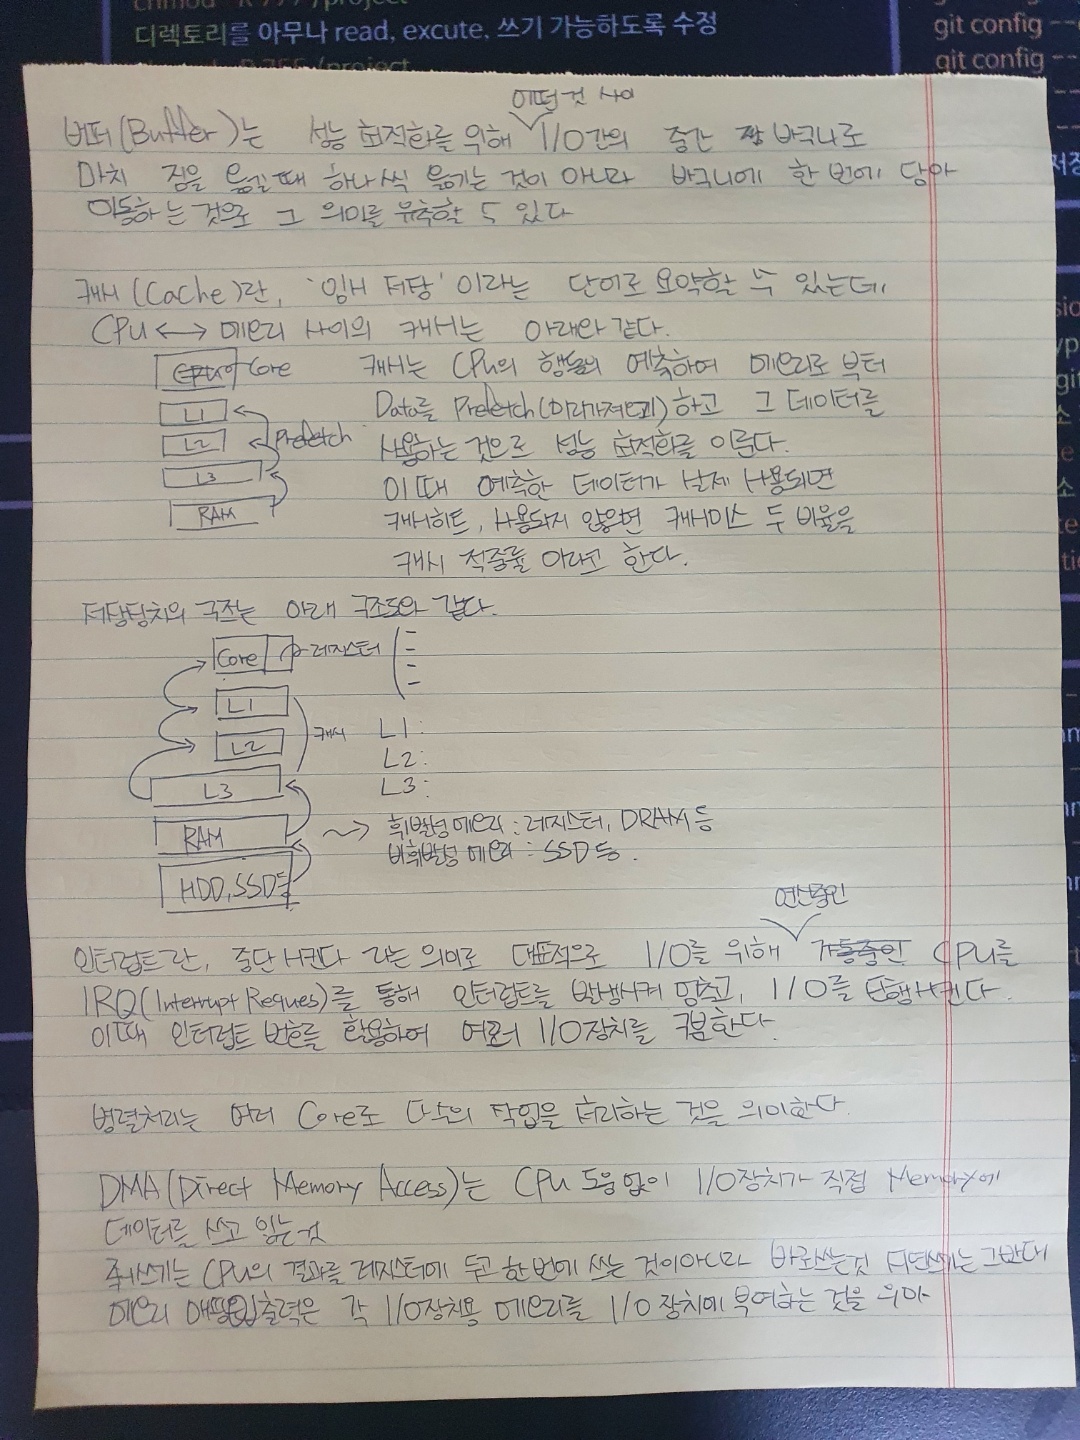 디렉토리를 아무나 read, excute, 쓰기 가능하도록 수정
git config --
git config --
어떤것 사이
버퍼(Buffer)는 성능 최적화를 위해 I/O간의 중간 바구니로
마치 짐을 옮길때 하나씩 옮기는 것이 아니라 바구니에 한 번에 담아
이동하는 것으로 그 의미를 유추할 수 있다
캐시(Cache)란, '임시 저장' 이라는 단어로 요약할 수 있는데,
CPU ↔ 메모리 사이의 캐시는 아래와 같다.
Core
캐시는 CPU의 행동의 예측하여 메모리로 부터
L1
Data를 Prefetch(미리가져오기)하고 그 데이터를
L2
Prefetch
사용하는 것으로 성능 최적화를 이룬다.
L3
이 때 예측한 데이터가 실제 사용되면
RAM
캐시히트, 사용되지 않으면 캐시미스 두 비율을
캐시 적중률 이라고 한다.
저장장치의 구조는 아래 구조도와 같다.
Core
레지스터
L1
캐시
L1:
L2
L2:
L3
L3:
RAM
휘발성 메모리 : 레지스터, DRAM 등
비휘발성 메모리 : SSD 등.
HDD, SSD등
연산중인
인터럽트란, 중단 시킨다 라는 의미로 대표적으로 I/O를 위해 가동중인 CPU를
IRQ(Interrupt Reques)를 통해 인터럽트를 발생시켜 멈추고, I/O를 실행시킨다.
이때 인터럽트 번호를 활용하여 여러 I/O장치를 구분한다.
병렬처리는 여러 Core로 다수의 작업을 처리하는 것을 의미한다.
DMA(Direct Memory Access)는 CPU 도움 없이 I/O장치가 직접 Memory에
데이터를 쓰고 읽는것
즉시쓰기는 CPU의 결과를 레지스터에 두고 한번에 쓰는 것이아니라 바로쓰는것 지연쓰기는 그반대
메모리 매핑입출력은 각 I/O장치용 메모리를 I/O 장치에 부여하는 것을 의미